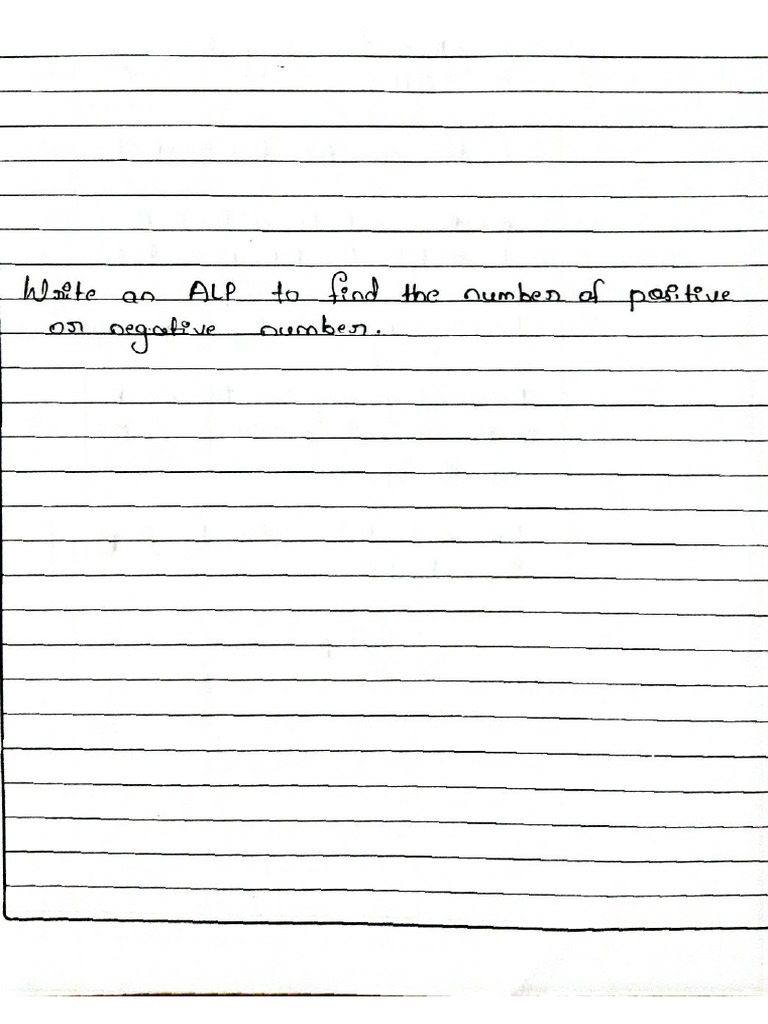 Write an ALP to find the number of positive
or negative number.